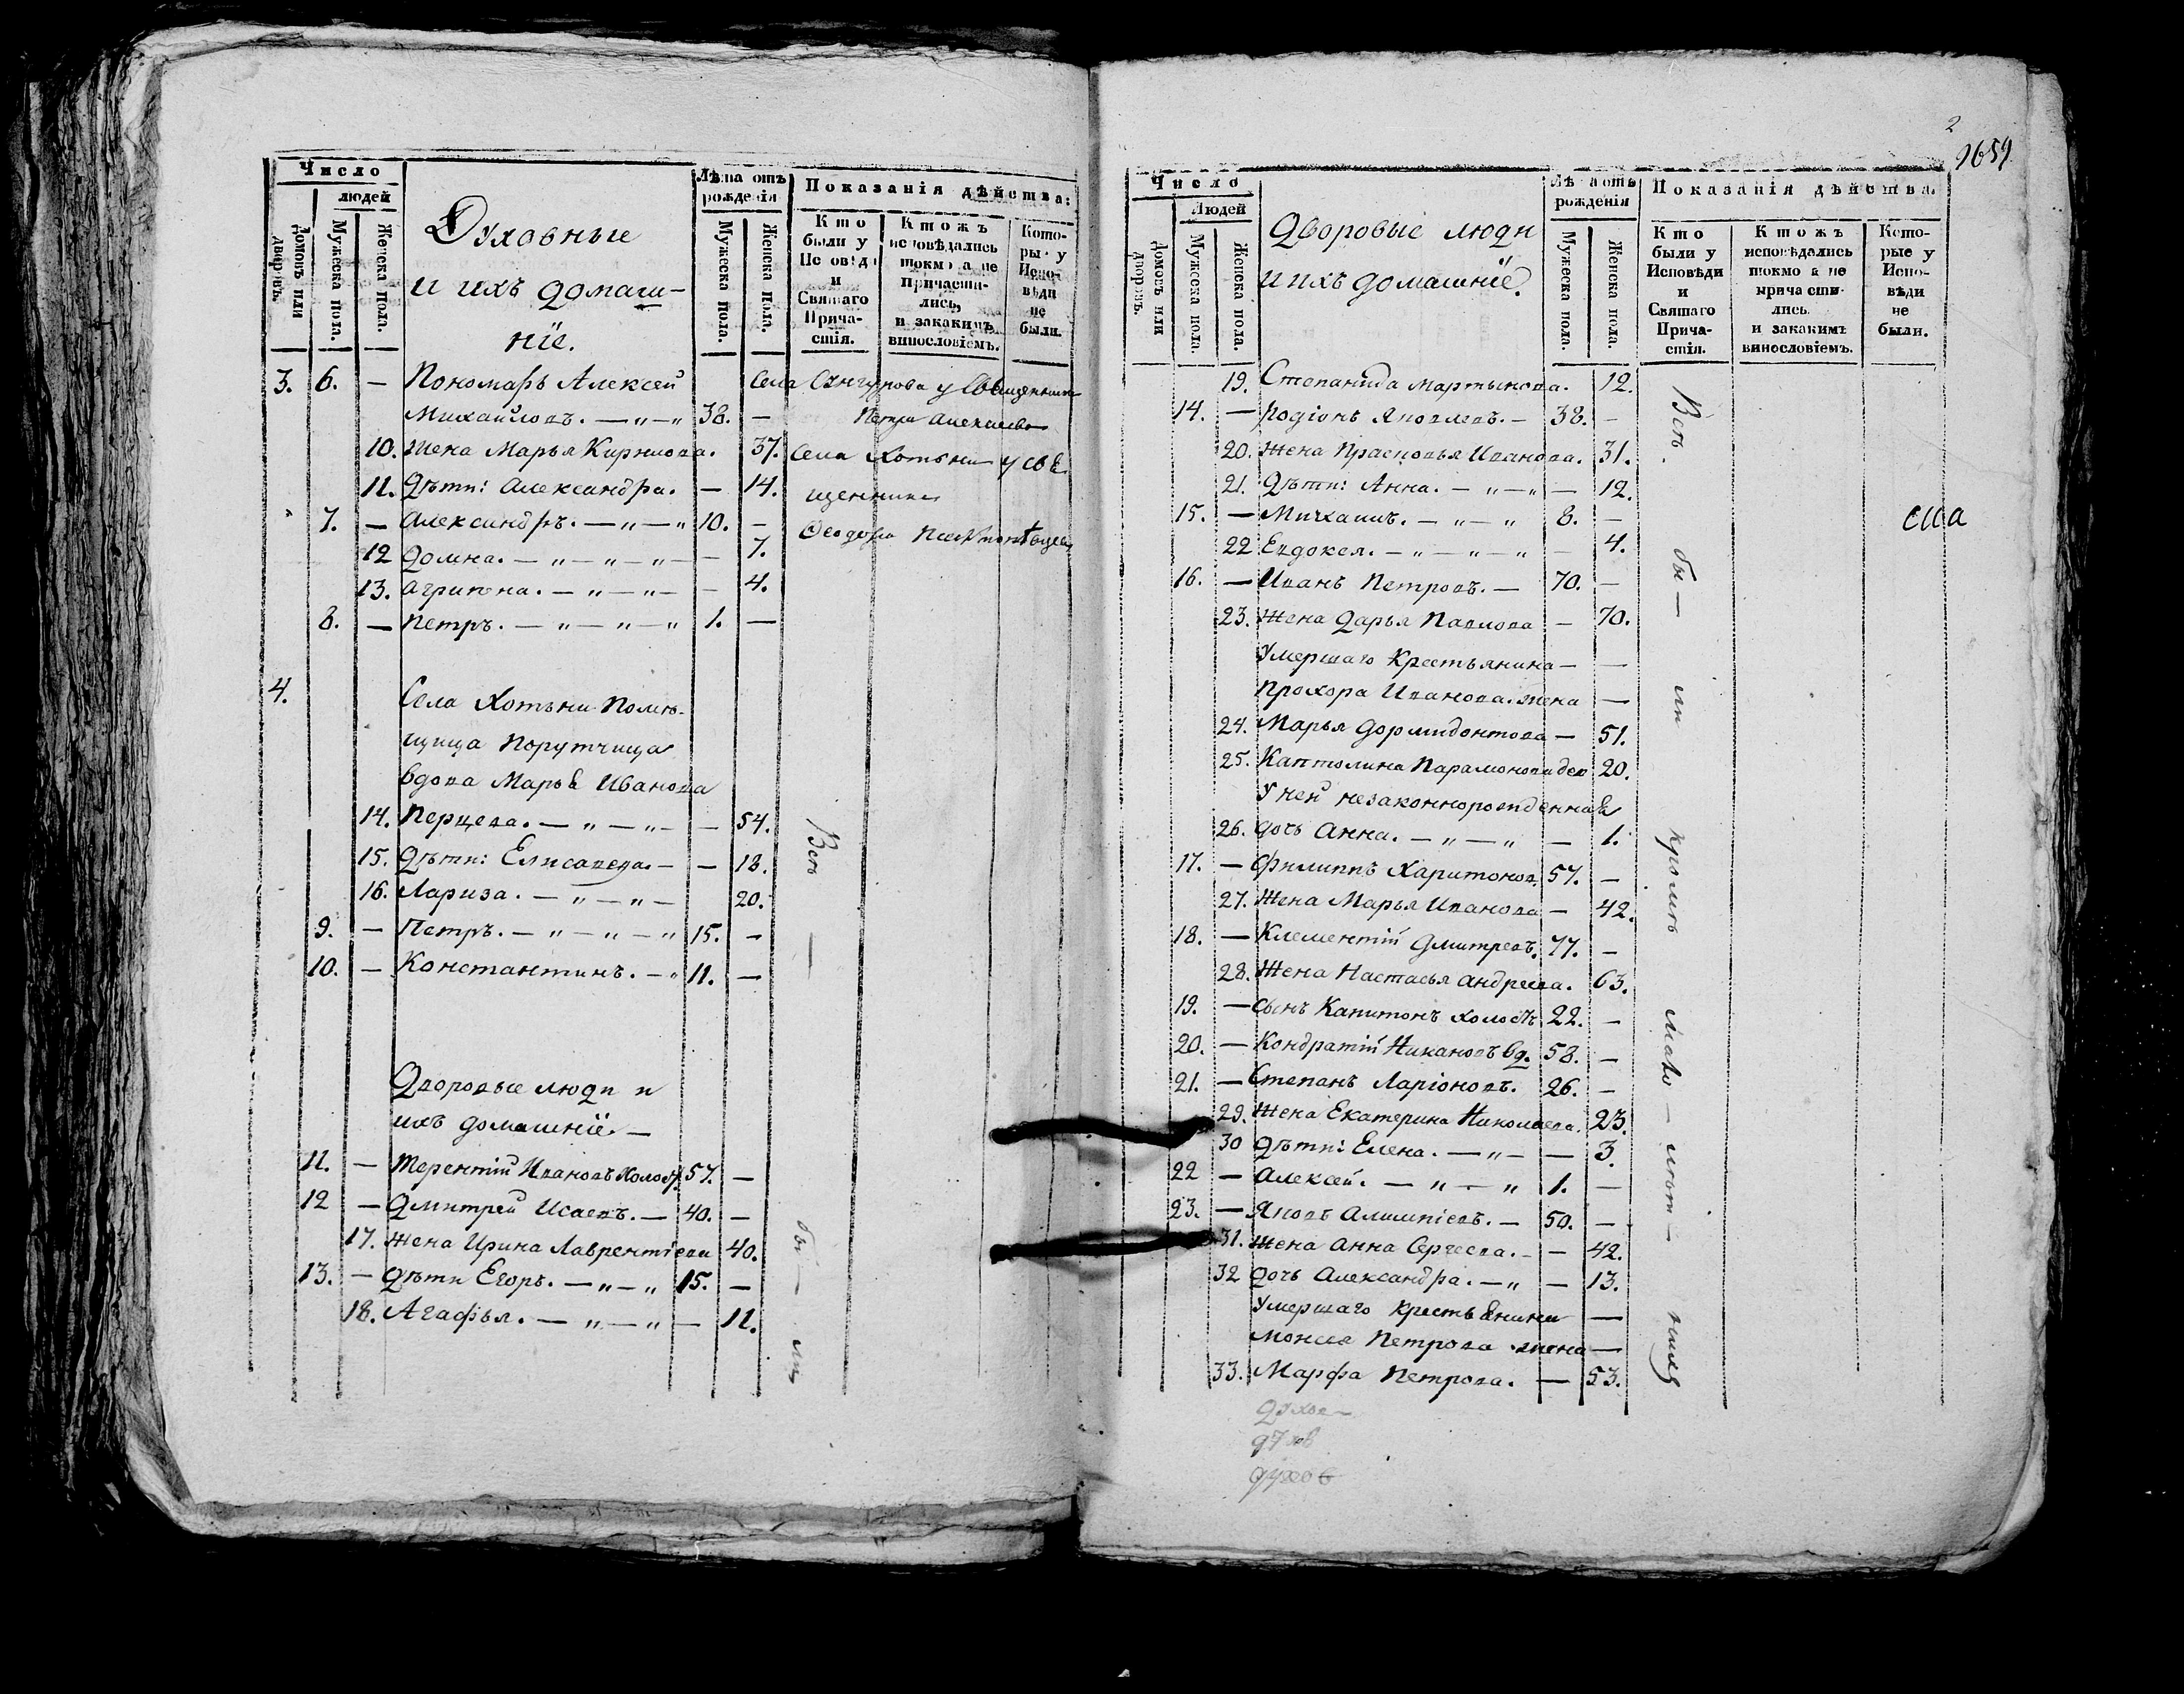 Число
людей
Домовъ или дворовъ.
Мужеска пола.
Женска пола.
Духовные
и ихъ домаш-
нїе.
Лѣта отъ
рожденія
Мужеска пола.
Женска пола.
Показанія дѣйства:
Кто
были у
Исповѣди
и
Святаго
Прича-
стія.
Ктожъ
исповѣдались
токмо а не
причасти-
лись,
и закакимъ
винословіемъ.
Кото-
рые у
Испо-
вѣди
не
были.
3. 6. — Пономарь Алексей
Михайловъ. — „ — „ 38. —
10. Жена Марья Кирилова. 37.
11. Дѣти: Александра. — 14.
7. — Александръ. — „ — „ 10. —
12 Домна. — „ — „ — „ — — 7.
13. Агрипена. — „ — „ — — 4.
8. — Петръ. — „ — „ — „ 1. —
Села у Священника
Петра Алексеева
Села Хотыни у свя
щенника
Феодора
4. Села Хотыни Помѣ-
щица Порутчица
вдова Марья Иванова
14. Перцева. — „ — „ — — 54.
15. Дѣти: Елисавета. — — 18.
16. Лариза. — „ — „ — 20.
9. — Петръ. — „ — „ — „ 15. —
10. — Константинъ. — „ 11. —
Дворовые люди и
ихъ домашнїе —
11. — Терентій Ивановъ холост. 57. —
12 — Дмитрей Исаевъ. — 40. —
17. Жена Ирина Лаврентіева 40.
13. — Дѣти Егоръ. — „ — „ 15. —
18. Агафья. — „ — „ — 11.
Всѣ — бы — ли
2
1659
Число
Людей
Домовъ или дворовъ.
Мужеска пола.
Женска пола.
Дворовые люди
и ихъ домашнїе.
Лѣта отъ
рожденія
Мужеска пола.
Женска пола.
Показанія дѣйства.
Кто
были у
Исповѣди
и
Святаго
Прича-
стія.
Ктожъ
исповѣдались
токмо а не
причасти-
лись.
и закакимъ
винословіемъ.
Кото-
рые у
Испо-
вѣди
не
были.
19. Степанида Мартынова. 12.
14. — Родіонъ Яковлевъ. — 38. —
20. Жена Прасковья Иванова. 31.
21. Дѣти: Анна. — „ — „ — 12.
15. — Михаилъ. — „ — „ 8. —
22 Евдокея. — „ — „ — „ — 4.
16. — Иванъ Петровъ. — 70. —
23. Жена Дарья Павлова — 70.
Умершаго Крестьянина — —
Прохора Иванова жена —
24. Марья Дормидонтова — 51.
25. Каптолина Парамонова дев 20.
У ней незаконнорожденная
26. дочь Анна. — „ — „ — 1.
17. — Филиппъ Харитонов. 57. —
27. Жена Марья Иванова — 42.
18. — Клементій Дмитревъ. 77. —
28. Жена Настасья Андреева. 63.
19. — Сынъ Капитонъ холостъ 22. —
20. — Кондратій Никановъ вд. 58. —
21. — Степанъ Ларіоновъ. 26. —
29. Жена Екатерина Николаева. 23.
30 Дѣти: Елена. — „ — — 3.
22 — Алексей. — „ — „ 1. —
23. — Яковъ Алимпіевъ. — 50. —
31. Жена Анна Сергеева. — — 42.
32 Дочь Александра. — „ — 13.
Умершаго Крестьянина —
Моисея Петрова жена —
33. Марфа Петрова. — 53.
Всѣ бы — ли кромѣ мало — лѣт — нихъ
духов
духов